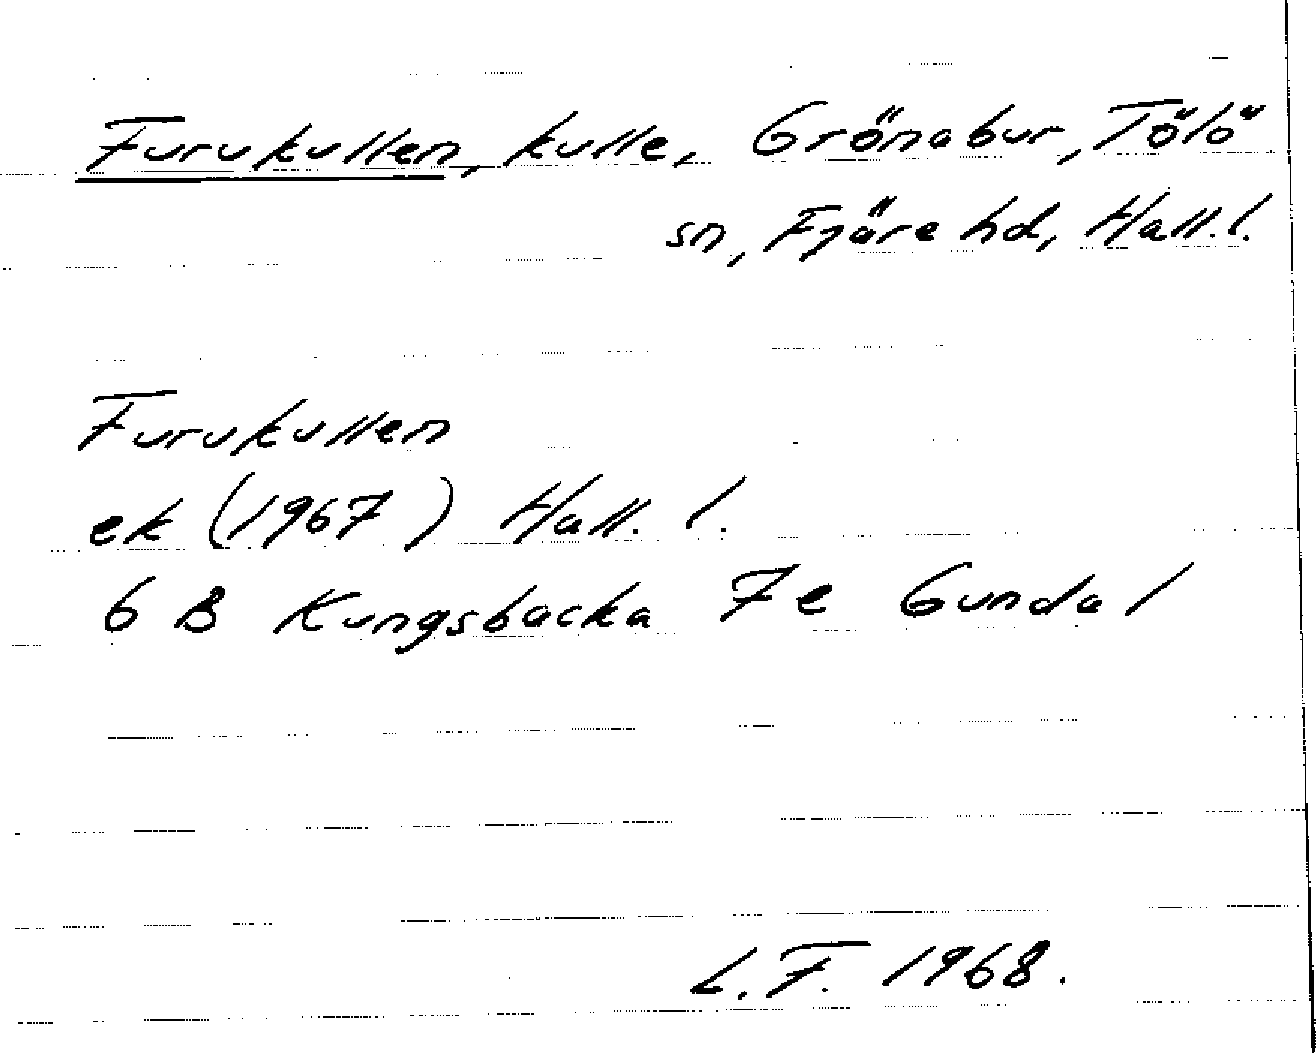 Furukullen, kulle, Grönabur, Tölö
sn, Fjäre hd, Hall.l.
Furukullen
ek (1967) Hall. l.
6 B Kungsbacka 7e Gundal
L.F. 1968.